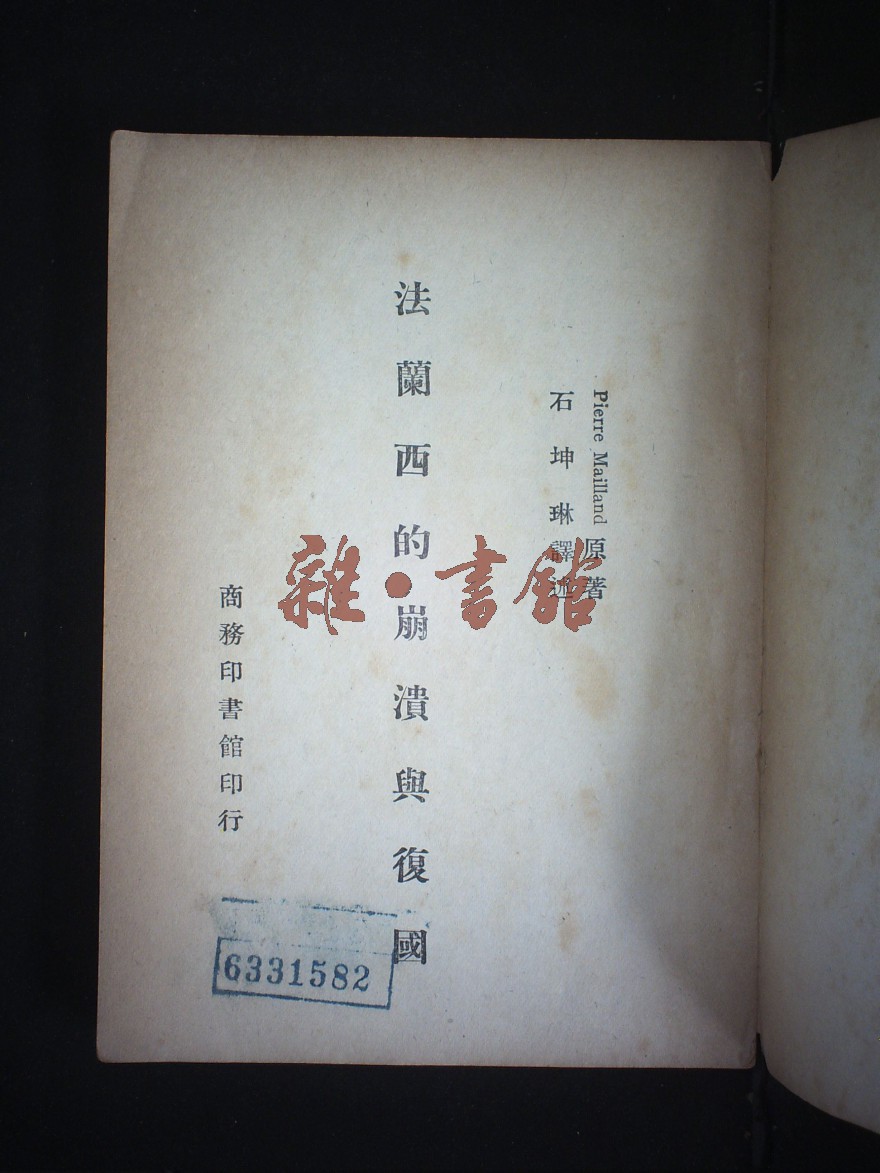 Pierre Mailland 原著
石坤琳譯述
法蘭西的崩潰與復國
商務印書館印行
6331582
雜·書館